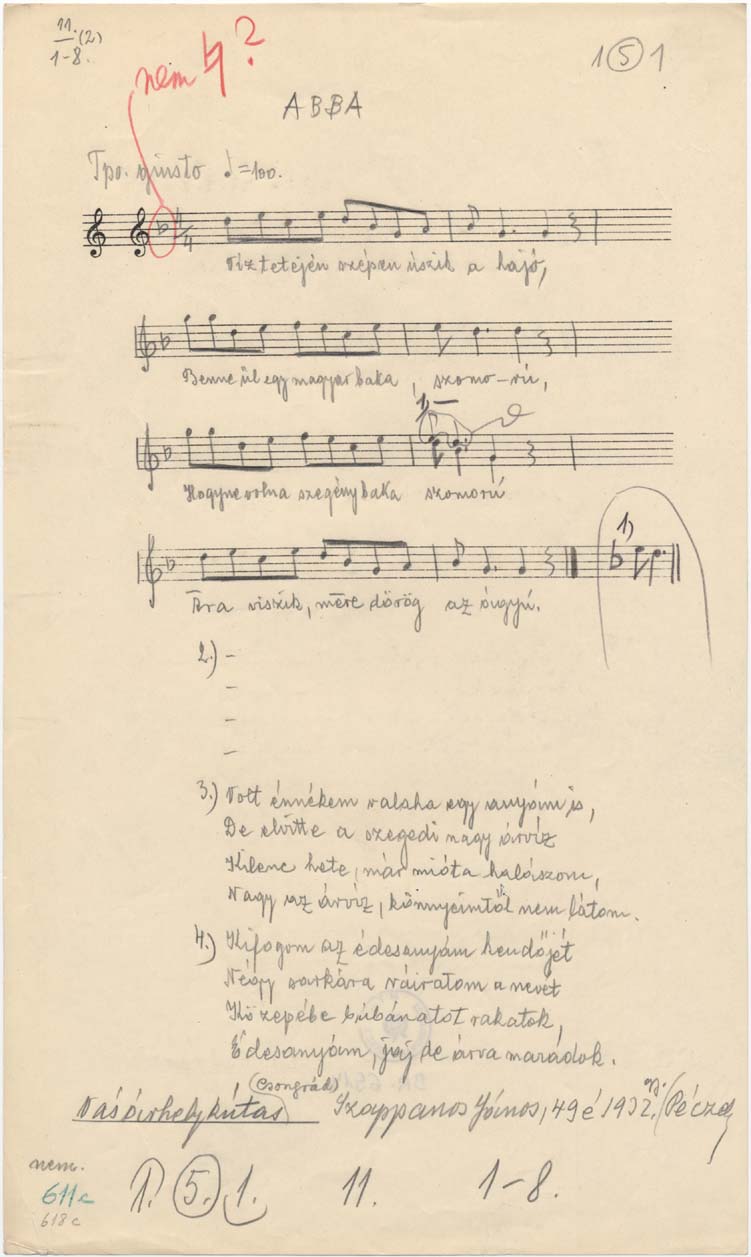 11. (2)
1-8.
nem ♮?
1 5 1
ABBA
Tpo. giusto ♩=100.
4/4
Víz tetején szépen úszik a hajó,
Benne ül egy magyar baka, szomo-rú,
1) –
Hogyne volna szegény baka szomorú
1)
Ara viszik, mēre dörög az óigyú.
2.) –
–
–
–
3.) Volt énnékem valaha egy anyám is,
De elvitte a szegedi nagy árvíz
Kilenc hete, már mióta halászom,
Nagy az árvíz, könnyeimtől nem látom.
4.) Kifogom az édesanyám kendőjét
Négy sarkára ráiratom a nevét
Közepébe búbánatot rakatok,
Édesanyám, jaj de árva maradok.
(Csongrád)
Vásárhelykútas Szappanos János, 49 é 1932. (Péczely
nem.
611c
618c
1. 5. 1. 11. 1-8.